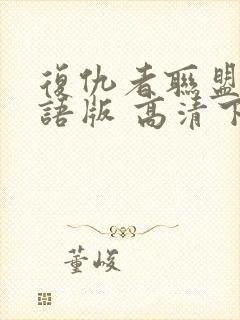 復仇者聯盟
語版 高清下
董峻